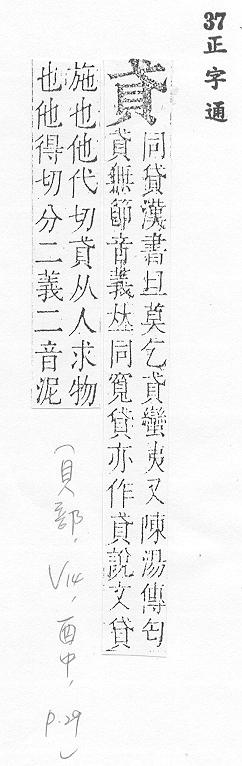 37正字通
貣
同貸漢書旦莫乞貣蠻夷又陳湯傳匃
貣無節音義𠀤同寬貸亦作貣說文貸
施也他代切貣从人求物
也他得切分二義二音泥
(貝部,V14,酉中,P.29)